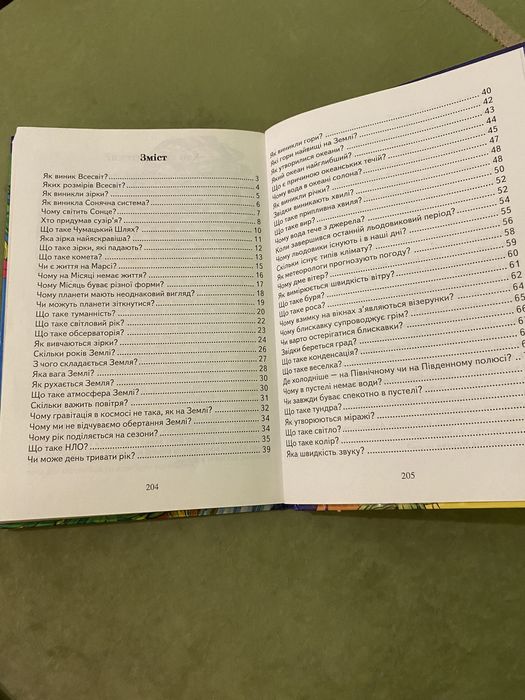 Зміст
Як виник Всесвіт? 3
Яких розмірів Всесвіт? 4
Як виникли зірки? 5
Як виникла Сонячна система? 6
Чому світить Сонце? 7
Хто придумав сузір'я? 8
Що таке Чумацький Шлях? 10
Яка зірка найяскравіша? 11
Що таке зірки, які падають? 12
Що таке комета? 13
Чи є життя на Марсі? 15
Чому на Місяці немає життя? 16
Чому Місяць буває різної форми? 17
Чому планети мають неоднаковий вигляд? 18
Чи можуть планети зіткнутися? 19
Що таке туманність? 20
Що таке світловий рік? 22
Що таке обсерваторія? 23
Як вивчаються зірки? 24
Скільки років Землі? 26
З чого складається Земля? 27
Яка вага Землі? 28
Як рухається Земля? 30
Що таке атмосфера Землі? 30
Скільки важить повітря? 31
Чому гравітація в космосі не така, як на Землі? 32
Чому ми не відчуваємо обертання Землі? 34
Чому рік поділяється на сезони? 34
Що таке НЛО? 35
Чи може день тривати рік? 39
204
Як виникли гори? 40
Які гори найвищі на Землі? 42
Як утворилися океани? 43
Який океан найглибший? 44
Що є причиною океанських течій? 45
Чому вода в океані солона? 47
Як виникли річки? 48
Звідки виникають хвилі? 48
Що таке припливна хвиля? 50
Що таке вир? 52
Чому вода тече з джерела? 52
Коли завершився останній льодовиковий період? 54
Чому льодовики існують і в наші дні? 55
Скільки існує типів клімату? 56
Як метеорологи прогнозують погоду? 58
Чому дме вітер? 59
Як вимірюється швидкість вітру? 60
Що таке буря? 61
Що таке роса? 62
Чому взимку на вікнах з'являються візерунки? 64
Чому блискавку супроводжує грім? 65
Чи варто остерігатися блискавки? 66
Звідки береться град?
Що таке конденсація?
Що таке веселка?
Де холодніше — на Північному чи на Південному полюсі?
Чому в пустелі немає води?
Чи завжди буває спекотно в пустелі?
Що таке тундра?
Як утворюються міражі?
Що таке світло?
Що таке колір?
Яка швидкість звуку?
205